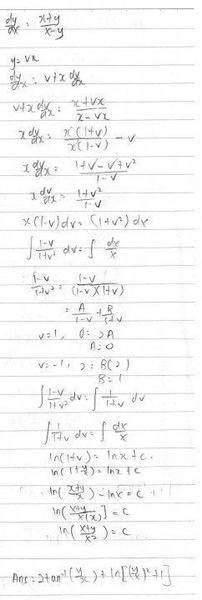 dy/dx = x+y/x-y
y = vx
dy/dx = v+x dv/dx
v+x dv/dx = x+vx/x-vx
x dv/dx = x(1+v)/x(1-v) - v
x dv/dx = 1+v-v+v²/1-v
x dv/dx = 1+v²/1-v
x(1-v)dv = (1+v²)dx
∫ 1-v/1+v² dv = ∫ dx/x
1-v/1+v² = 1-v/(1-v)(1+v)
= A/1-v + B/1+v
v=1, 0=2A
A=0
v=-1, 2=B(2)
B=1
∫ 1-v/1+v² dv = ∫ 1/1+v dv
∫ 1/1+v dv = ∫ dx/x
ln(1+v) = lnx+c
ln(1+y/x) = lnx+c
ln(x+y/x) - lnx = c
ln[x+y/x(x)] = c
ln(x+y/x²) = c
Ans: 2tan⁻¹(y/x) + ln[(y/x)²+1]